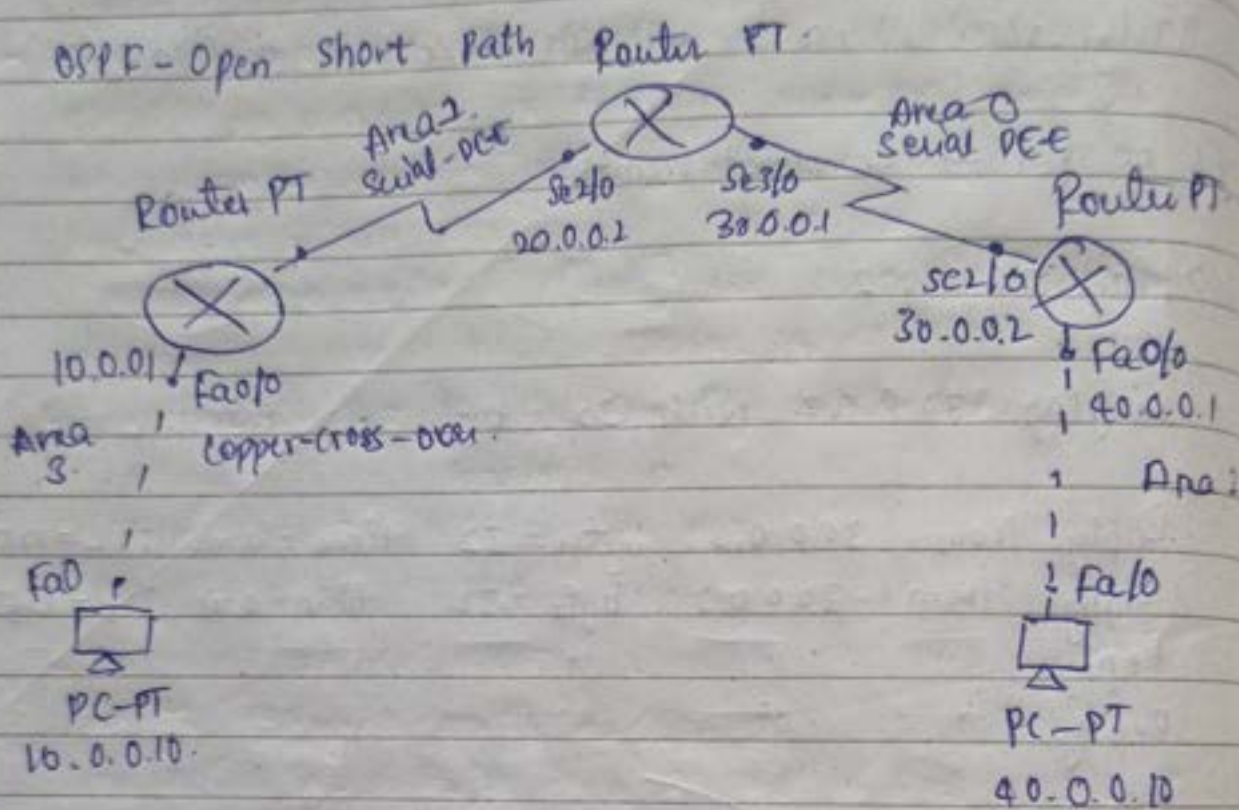 OSPF - Open Short Path Router PT.
Area 1
Serial-DCE
Area 0
Serial DCE
Router PT
Se2/0
20.0.0.2
Se3/0
30.0.0.1
Router PT
Se2/0
30.0.0.2
10.0.01
Fa0/0
Fa0/0
40.0.0.1
Area
3
Copper-cross-over.
Area
Fa0
Fa/0
PC-PT
10.0.0.10.
PC-PT
40.0.0.10